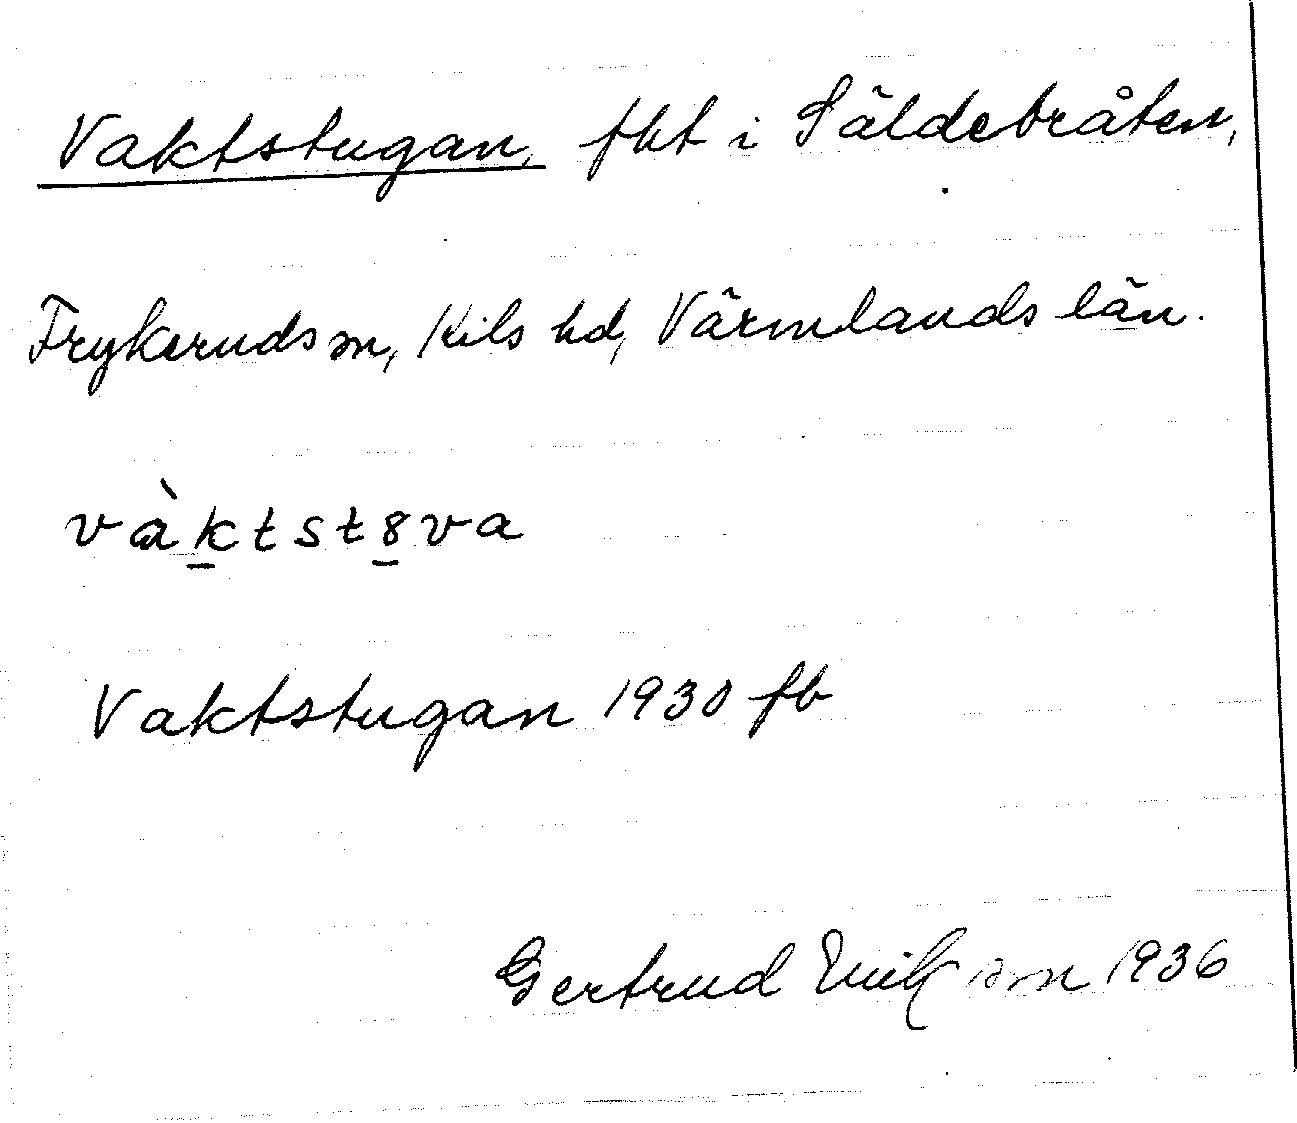 Vaktstugan, fht i Säldebråten,
Frykeruds sn, Kils hd, Värmlands län.
và̀k̲tst8̲va
Vaktstugan 1930 fb
Gertrud Eriksson 1936